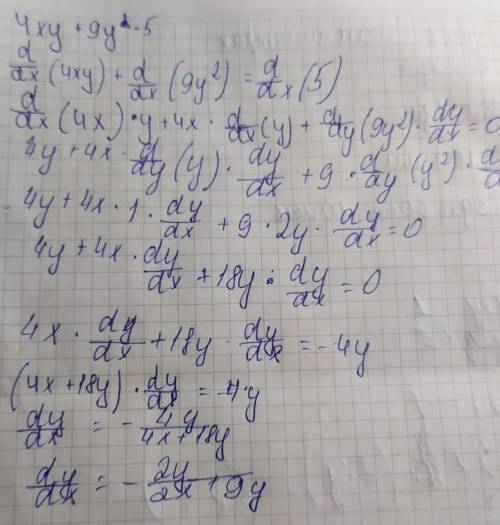 4xy + 9y² = 5
d/dx (4xy) + d/dx (9y²) = d/dx (5)
d/dx (4x) · y + 4x · d/dx (y) + d/dy (9y²) · dy/dx = 0
4y + 4x · d/dy (y) · dy/dx + 9 · d/dy (y²) ·
4y + 4x · 1 · dy/dx + 9 · 2y · dy/dx = 0
4y + 4x · dy/dx + 18y · dy/dx = 0
4x · dy/dx + 18y · dy/dx = -4y
(4x + 18y) · dy/dx = -4y
dy/dx = - 4y/4x + 18y
dy/dx = - 2y/2x + 9y